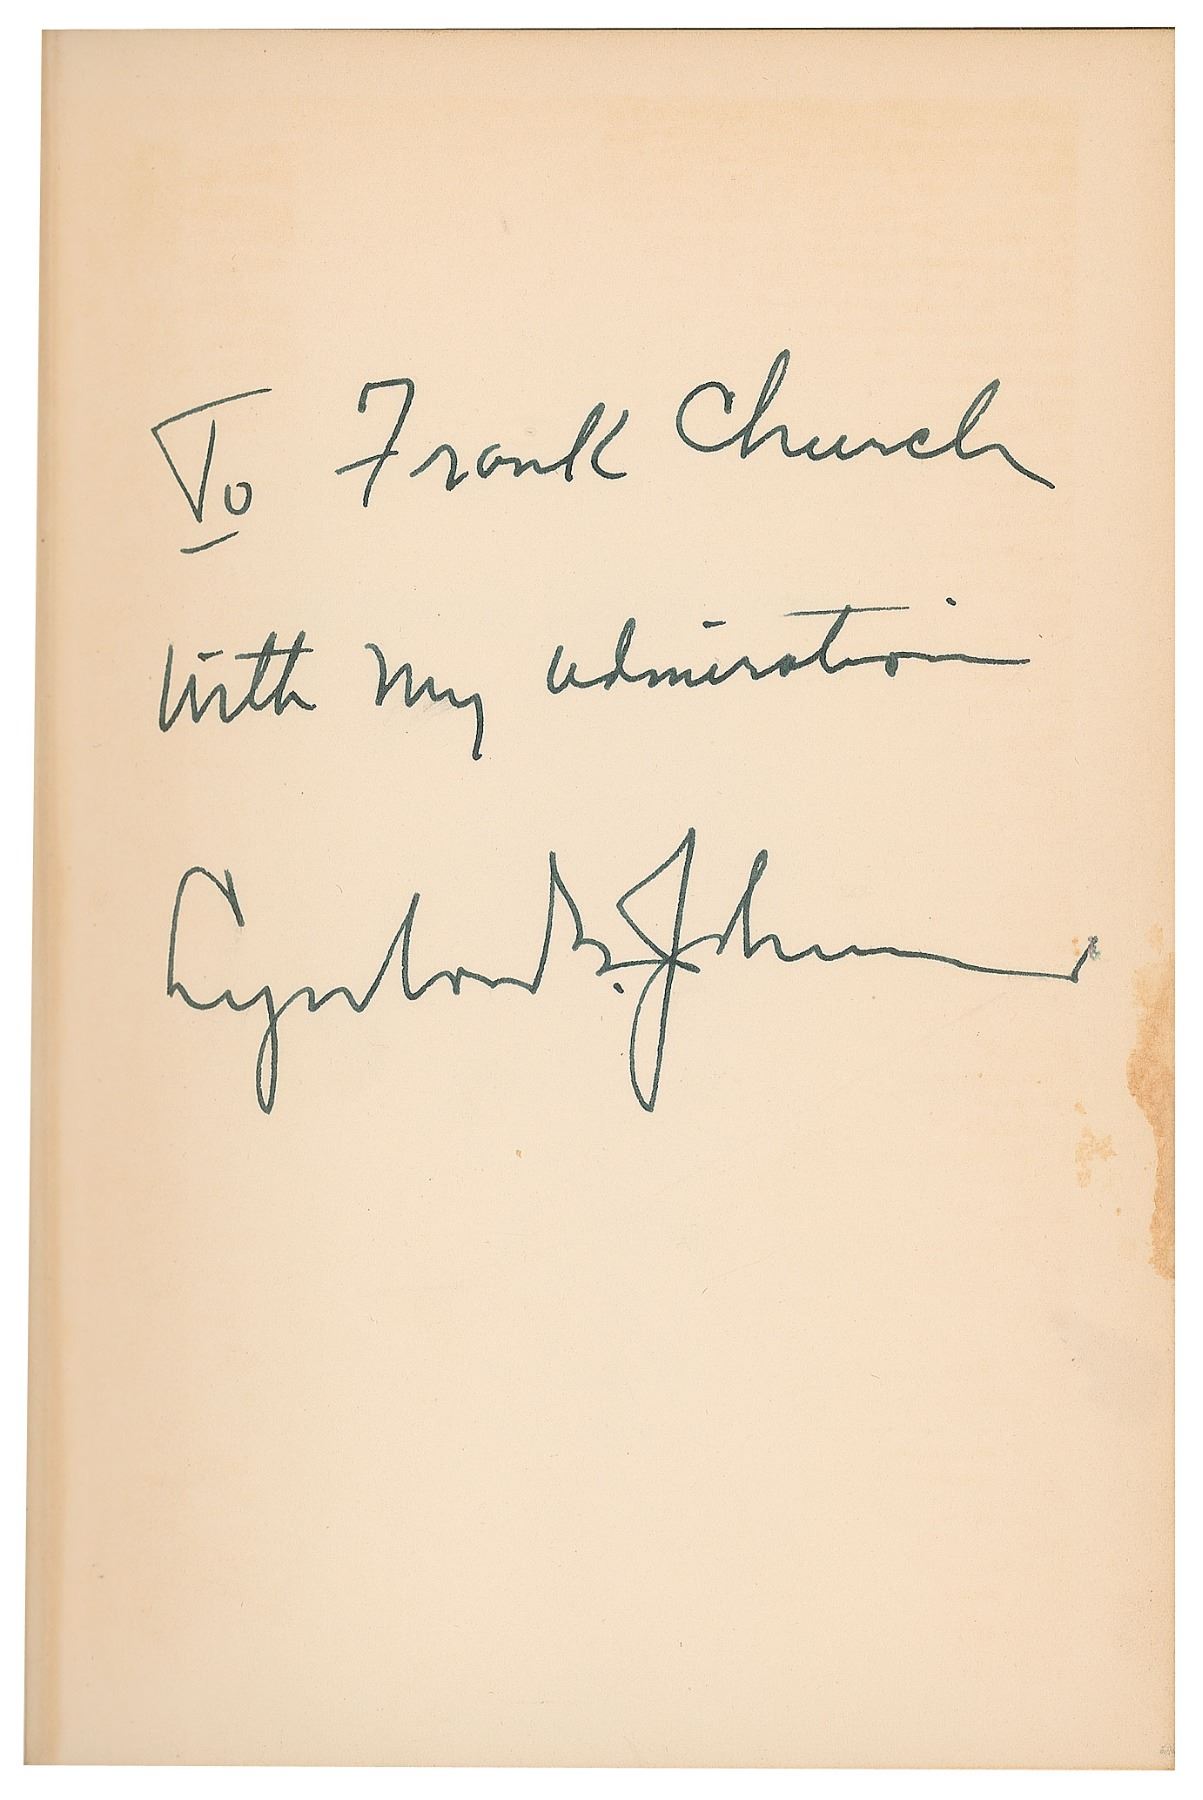 To Frank Church
With my admiration
Lyndon B. Johnson